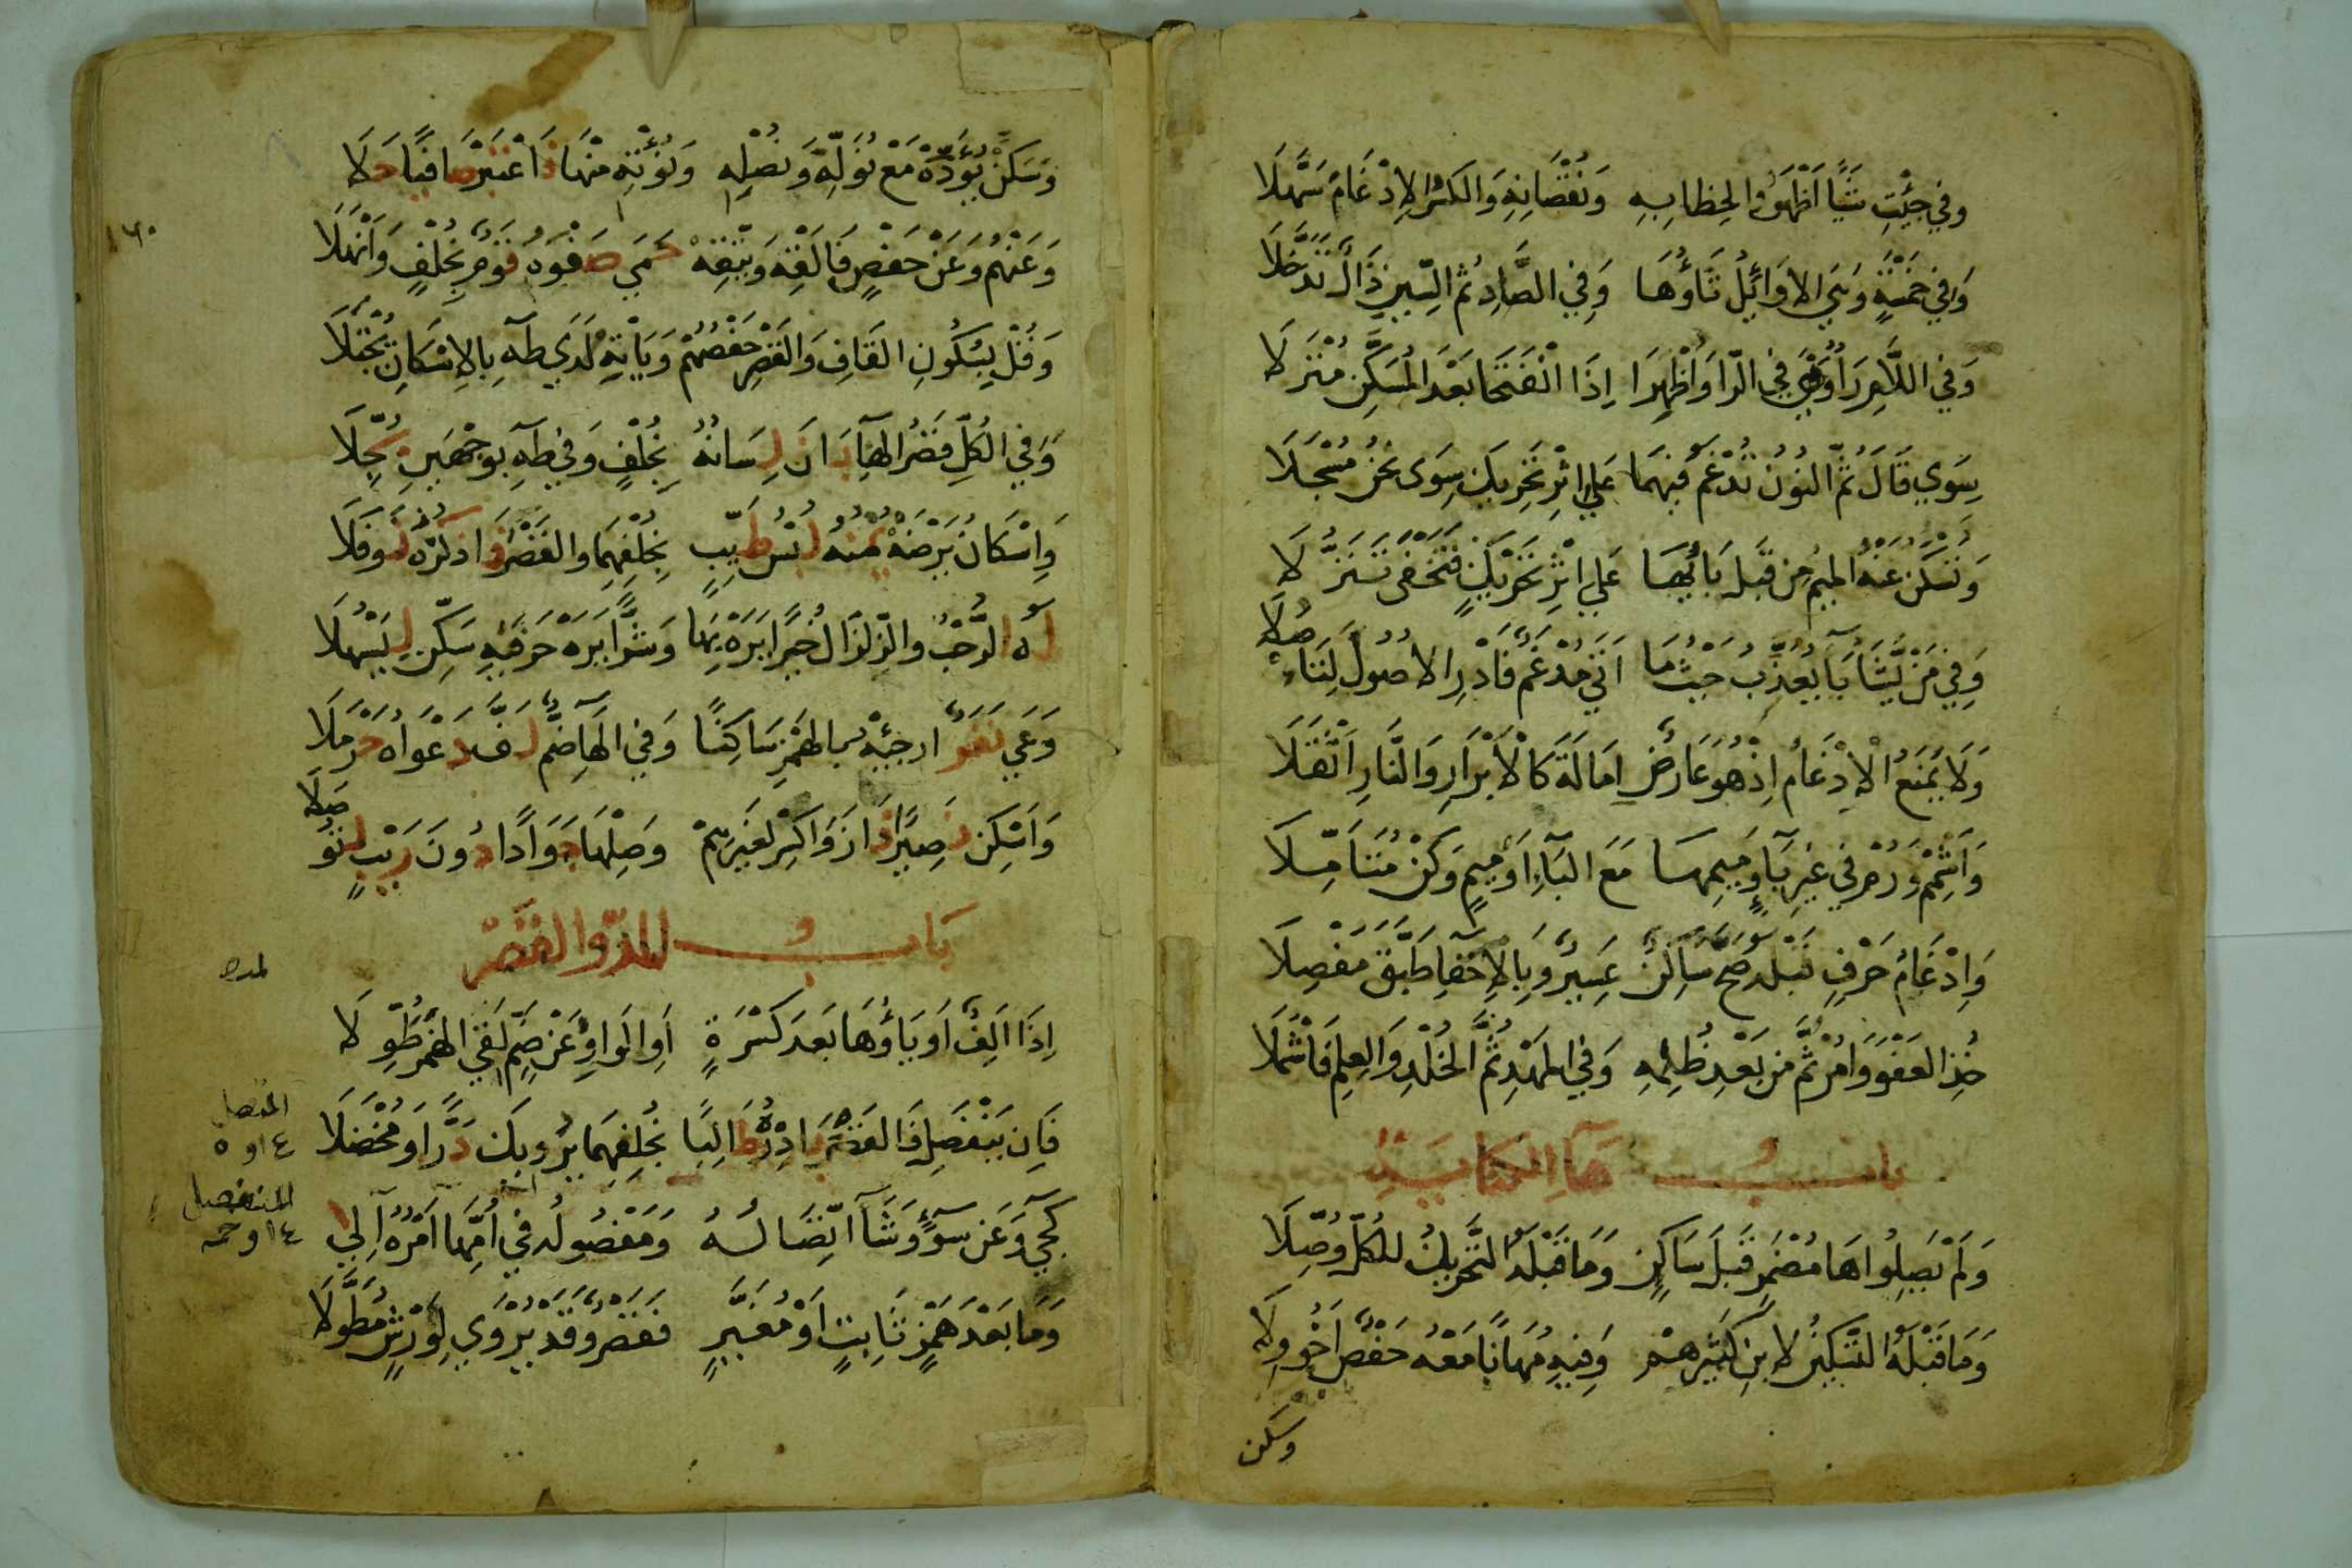 وَفِي جِئْتِ شَيْئًا أَظْهَرُوا لِخِطَابِهِ وَنُقْصَانِهِ وَالكَسْرُ الاِدْغَامَ سَهَّلَا
وَفِي خَمْسَةٍ وَهْيَ الاوَائِلُ ثَاؤُهَا وَفِي الصَّادِ ثُمَّ السِّينِ ذَالٌ تَدَخَّلَا
وَفِي اللَّامِ رَاءٌ وَهْيَ فِي الرَّا وَأُظْهِرَا إِذَا انْفَتَحَا بَعْدَ الْمُسَكَّنِ مُنْزَلَا
سِوَي قَالَ ثُمَّ النُونُ تُدْغَمُ فِيهِمَا عَلَي إِثْرِ تَحْرِيكٍ سِوَى نَحْنُ مُسْجَلَا
وَتُسْكَنُ عَنْهُ الْمِيمُ مِن قَبْلِ بَائِهَا عَلَي إِثْرِ تَحْرِيكٍ فَتَخْفَى تَنَزُّلَا
وَفِي مَنْ يَّشَا بَا يُعَذِّبُ حَيْثُمَا أَتَى مُدْغَمٌ فَادْرِ الاصُولَ لِتَاصُلَا
وَلَا يَمْنَعُ الْاِدْغَامُ إِذْ هُوَ عَارِضٌ إِمَالَةَ كَالْأَبْرَارِ وَالنَّارِ أَثْقَلَا
وَأَشْمِمْ وَرُمْ فِي غَيْرِ بَاءٍ وَمِيمِهَا مَعَ البَاءِ أَوْ مِيمٍ وَكُنْ مُتَأَمِّلَا
وَإِدْغَامُ حَرْفٍ قَبْلَهُ صَحَّ سَاكِنٌ عَسِيرٌ وَبِالْإِخْفَا طَبَّقَ مَفْصِلَا
خُذِ العَفْوَ وَأْمُرْ ثُمَّ مِن بَعْدِ ظُلْمِهِ وَفِي المَهْدِ ثُمَّ الخُلْدِ وَالعِلْمِ فَاشْمُلَا
بابُ هَاءِ الكِنَايَةِ
وَلَمْ يَصِلُوا هَا مُضْمَرٍ قَبْلَ سَاكِنٍ وَمَا قَبْلَهُ التَّحْرِيكُ لِلكُلِّ وُصِّلَا
وَمَا قَبْلَهُ التَّسْكِينُ لِابْنِ كَثِيرِهِمْ وَفِيهِ مُهَانًا مَعْهُ حَفْصٌ أَخُو وِلَا
وسكن
وَسَكِّنْ يُؤَدِّهْ مَعْ نُوَلِّهْ وَنُصْلِهِ وَنُؤْتِهِ مِنْهَا فَاعْتَبِرْ صَافِيًا حَلَا
وَعَنْهُمْ وَعَنْ حَفْصٍ فَأَلْقِهْ وَيَتَّقِهْ حَمَي صَفْوَهُ قَوْمٌ بِخُلْفٍ وَأَنْهَلَا
١٦٠
وَقُلْ بِسُكُونِ القَافِ وَالقَصْرِ حَفْصُهُمْ وَيَأْتِهْ لَدَي طَهَ بِالإِسْكَانِ يُجْتَلَا
وَفِي الكُلِّ قَصْرُ الهَاءِ بَانَ لِسَانُهُ بِخُلْفٍ وَفِي طَهَ بِوَجْهَيْنِ بُجِّلَا
وَإِسْكَانُ يَرْضَهْ يُمْنُهُ لُبْسُ طَيِّبٍ بِخُلْفِهِمَا وَالقَصْرُ فَاذْكُرْهُ نَوْفَلَا
لَهُ الرُّحْبُ وَالزِّلْزَالُ خَيْرًا يَرَهْ بِهَا وَشَرًّا يَرَهْ حَرْفَيْهِ سَكِّنْ لِيَسْهُلَا
وَعَي نَفَرٌ أَرْجِئْهُ بِالهَمْزِ سَاكِنًا وَفِي الهَاءِ ضَمٌّ لَفَّ دَعْوَاهُ حَرْمَلَا
وَأَسْكِنْ نَصِيرًا فَازَ وَاكْسِرْ لِغَيْرِهِمْ وَصِلْهَا جَوَادًا دُونَ رَيْبٍ لِتُوصَلَا
بَابُ المَدِّ وَالقَصْرِ
إِذَا أَلِفٌ أَوْ يَاؤُهَا بَعْدَ كَسْرَةٍ أَوِ الوَاوُ عَنْ ضَمٍّ لَقِي الهَمْزَ طُوِّلَا
فَإِن يَنْفَصِلْ فَالقَصْرَ بَادِرْهُ طَالِبًا بِخُلْفِهِمَا يُرْوِيكَ دَرًّا وَمُخْضَلَا
المتصل
٤ او ٥
كَجِيءَ وَعَنْ سُوءٍ وَشَاءَ اتِّصَالُهُ وَمَفْصُولُهُ فِي أُمِّهَا أَمْرُهُ إِلَي
المنفصل
وَمَا بَعْدَ هَمْزٍ ثَابِتٍ أَوْ مُغَيَّرٍ فَقَصْرٌ وَقَدْ يُرْوَي لِوَرْشٍ مُطَوَّلَا